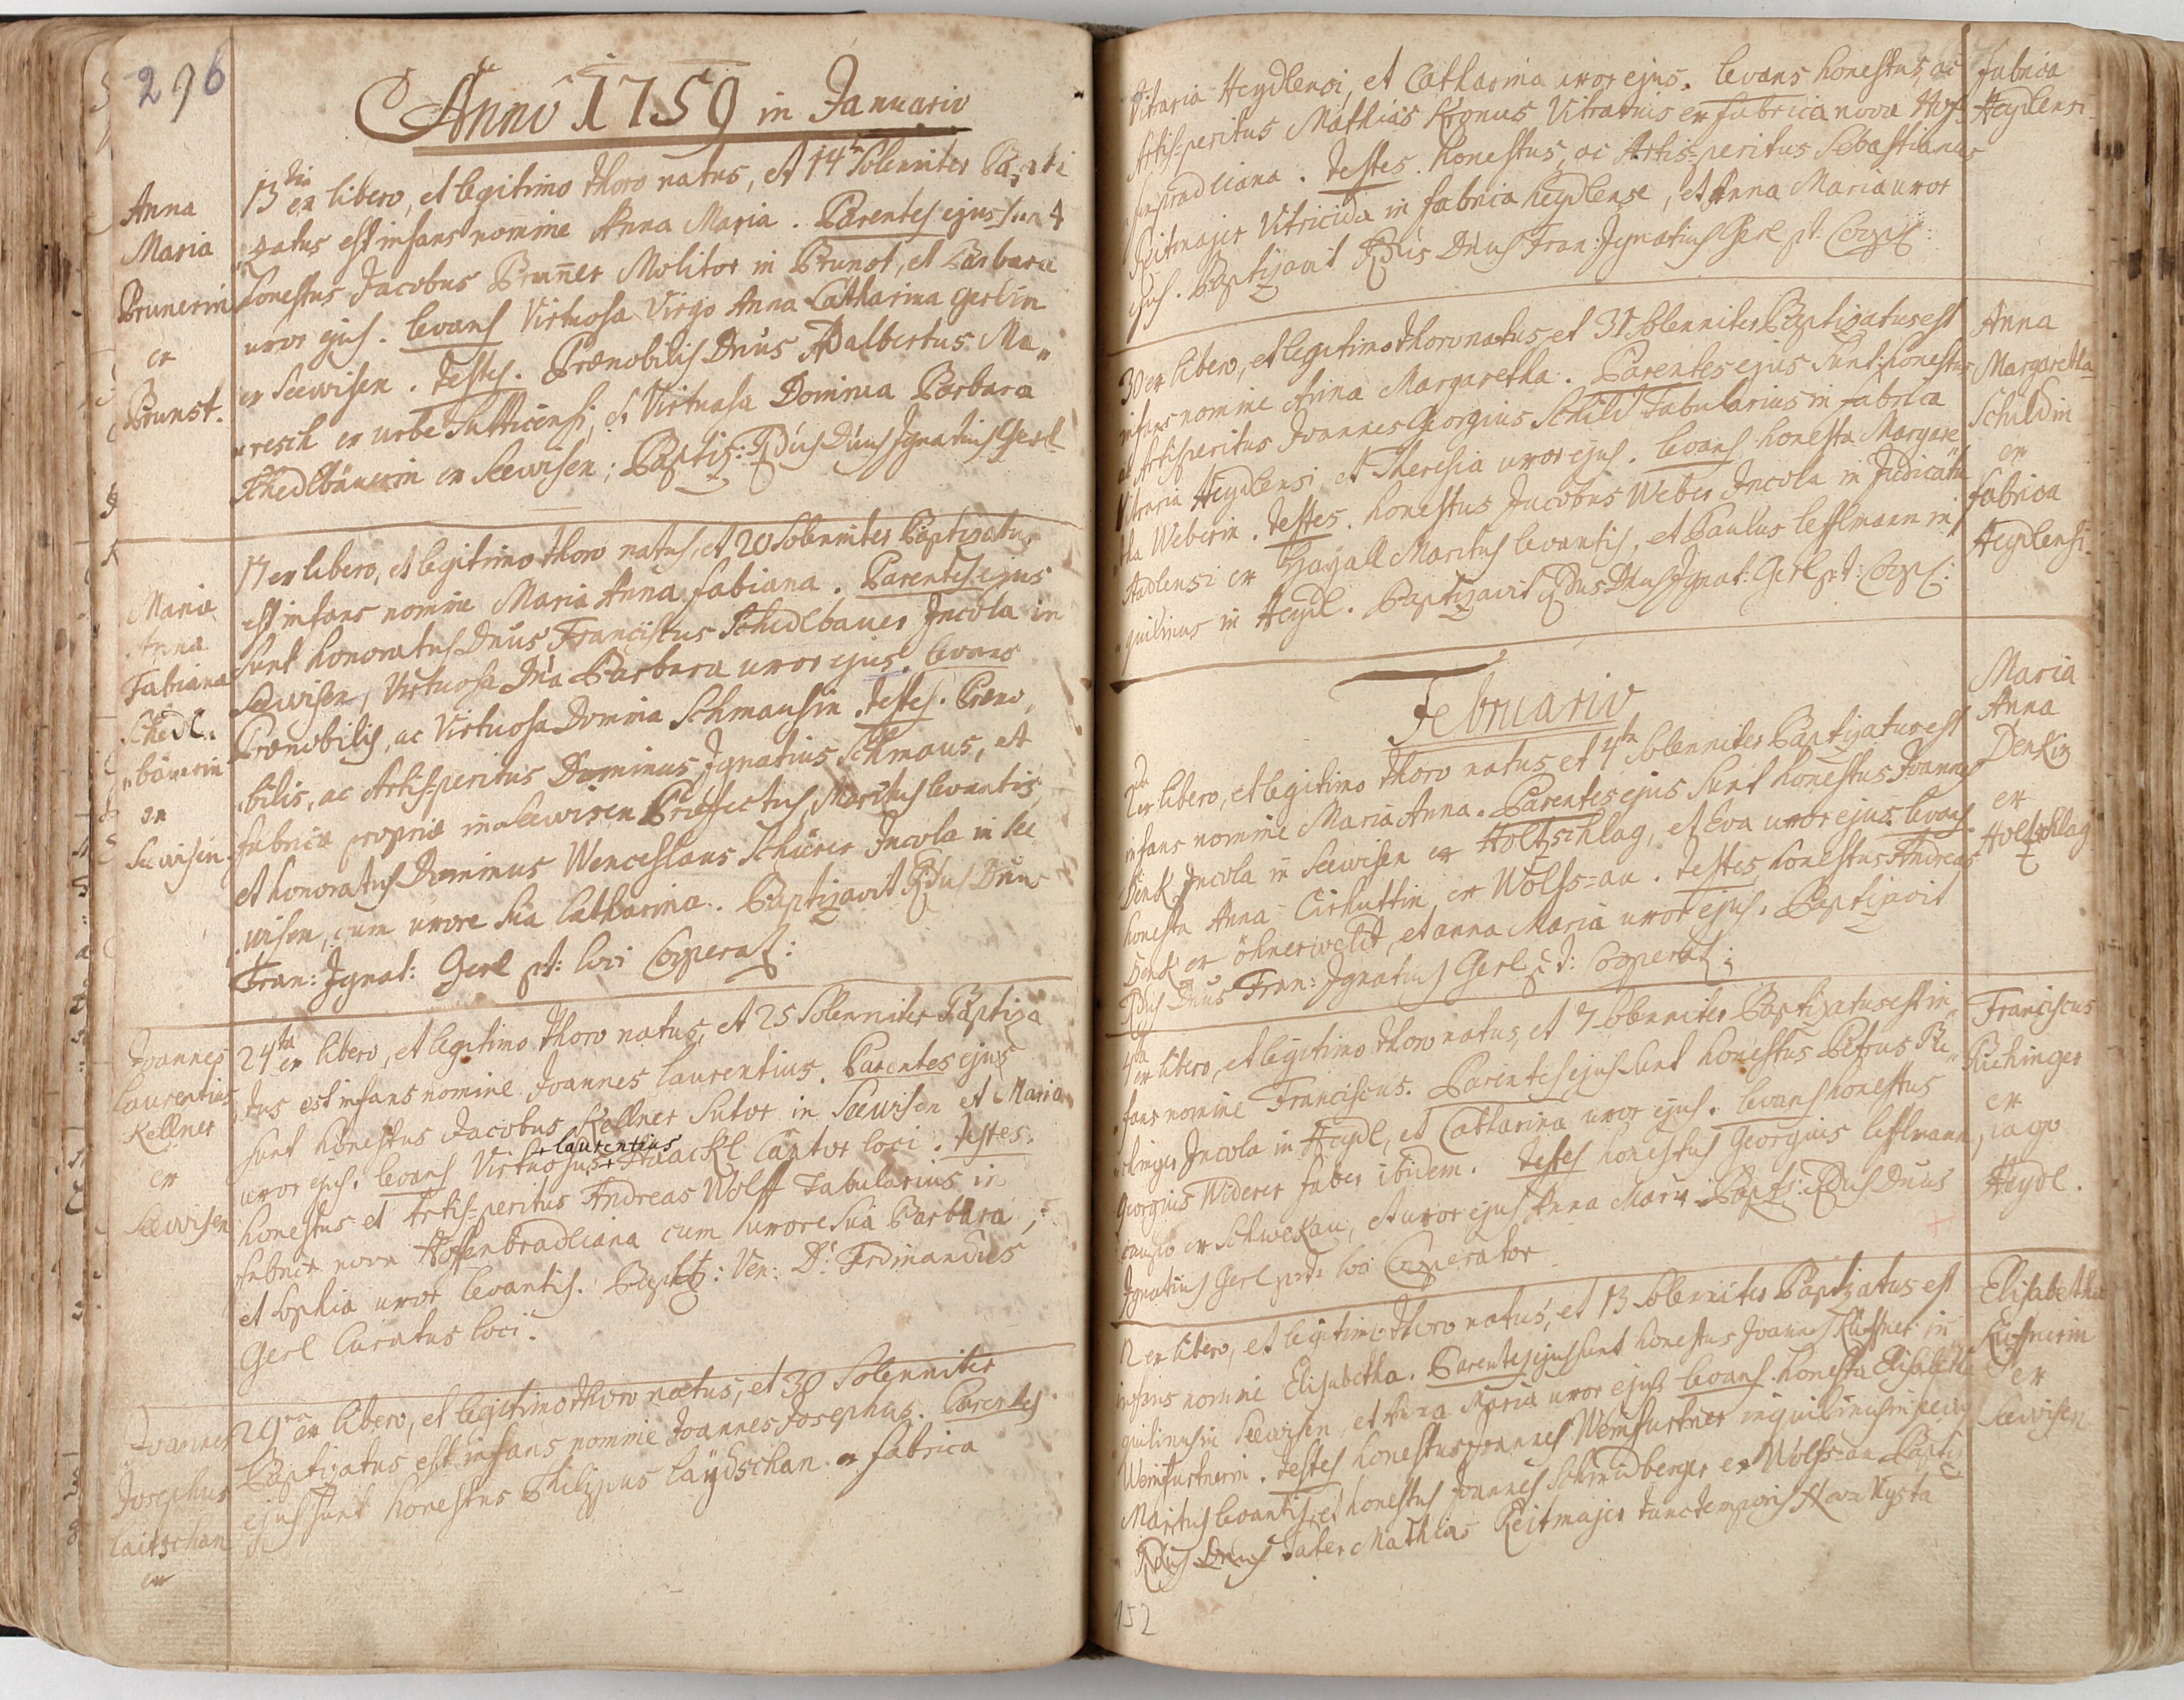 296
Anno 1759 in Januario
Anna
Maria
Prunerin
ex
Prunst.
13tia ex libero, et legitimo thoro natus, et 14ta Solenniter Bapti
zatus est infans nomine Anna Maria. Parentes ejus sunt
honestus Jacobus Pruner Molitor in Prunst, et Barbara
uxor ejus. levans Virtuosa Virgo Anna Catharina Gerlin
ex Seewisen. testes. Prænobilis Dnus Adalbertus Ma„
„resch ex urbe Sutticensi, et Virtuosa Domina Barbara
Schedlbäuerin ex Seewisen; Baptiz: Rdus Dnus Ignatius Gerl
Maria
Anna
Fabiana
Schedl„
„bäuerin
ex
Seewisen
17 ex libero, et legitimo thoro natus, et 20 Solenniter Baptizatus
est infans nomine Maria Anna Fabiana. Parentes ejus
sunt honoratus Dnus Franciscus Schedlbauer Incola in
Seewisen, Virtuosa Dna Barbara uxor ejus. levans
Prænobilis, ac Virtuosa Domina Schmausin testes. Præno„
„bilis, ac Artis-peritus Dominus Ignatius Schmaus, et
fabricæ propriæ in Seewisen Præfectus, Maritus levantis,
et honoratus Dominus Wenceslaus Schürer Incola in See„
„wisen, cum uxore sua Catharina. Baptizavit Rdus Dnus
Fran: Ignat: Gerl pt: loci Cooperat:
Joannes
Laurentius
Kellner
ex
Seewisen
24ta ex libero, et legitimo thoro natus, et 25 Solenniter Baptiza
„tus est infans nomine Joannes Laurentius. Parentes ejus
sunt honestus Jacobus Kellner Sutor in Seewisen et Maria
+ Laurentius
uxor ejus. levans Virtuosus + Haackl Cantor loci. testes.
honestus et Artis-peritus Andreas Wolff Tabularius in
fabrica nova Hoffenbradliana cum uxore sua Barbara,
et Sophia uxor levantis. Baptiz: Ven: D: Ferdinandus
Gerl Curatus loci.
Joannes
Josephus
Laitschan
ex
29na ex libero, et legitimo thoro natus, et 30 Solenniter
Baptizatus est infans nomine Joannes Josephus. Parentes
ejus sunt honestus Philippus Laydschan ex fabrica
Vitraria Heydlensi, et Catharina uxor ejus. levans honestus, ac
Artis-peritus Mathias Kronus Vitrarius ex fabrica nova Hof„
„fenpradliana. testes. honestus, ac Artis-peritus Sebastianus
Reitmajer Vitricida in fabrica heydlense, et Anna Maria uxor
ejus. Baptizavit Rdus Dnus Fran: Ignatius Gerl pt: Coop:
fabrica
Heydlensi.
30 ex libero, et legitimo thoro natus, et 31 Solenniter Baptizatus est
infans nomine Anna Margaretha. Parentes ejus sunt: honestus
et Artis peritus Joannes Georgius Schild Tabularius in fabrica
Vitraria Heydlensi, et Theresia uxor ejus. levans honesta Margare„
„tha Weberin. testes. honestus Jacobus Weber Incola in Judicatu
Stadlensi ex Hayall Maritus levantis, et Paulus Lefflmann in„
„quilinus in Heydl. Baptizavit Rdus Dnus Ignat: Gerl pt: Coop:
Anna
Margaretha
Schildin
ex
fabrica
Heydlensi.
Februario
2da ex libero, et legitimo thoro natus et 4ta Solenniter Baptizatus est
infans nomine Maria Anna. Parentes ejus sunt honestus Joannes
Denk Incola in Seewisen ex Holtzschlag, et Eva uxor ejus levans
honesta Anna Cirhuttin, ex Wolfs=au. testes honestus Andreas
Denk ex öhnerwelt, et anna Maria uxor ejus. Baptizavit
Rdus Dnus Fran: Ignatius Gerl p: t: Cooperat:
Maria
Anna
Denkin
ex
Holtzschlag
4ta ex libero, et legitimo thoro natus, et 7 Solenniter Baptizatus est in„
„fans nomine Franciscus. Parentes ejus sunt honestus Petrus Ri„
„chinger Incola in Heydl, et Catharina uxor ejus. levans honestus
Georgius Widerer faber ibidem. testes honestus Georgius Lefflmann,
ex Schwekau, et uxor ejus Anna Maria Bapt: Rdus Dnus
Ignatius Gerl p:t: loci Cooperator
Franciscus
Richinger
ex
pago
Heydl.
12 ex libero, et legitimo thoro natus, et 13 Solenniter Baptizatus est
infans nomine Elisabetha. Parentes ejus sunt honestus Joannes Küffner in„
„quilinus in Seewisen, et Anna Maria uxor ejus levans honesta Elisabetha
Weinfurtnerin. testes honestus Joannes Weinfurtner inquilinus in Seewis:
Maritus levantis, et honestus Joannes Schmidberger ex Wolfs=au Baptiz
Rdus Dnus Pater Mathias Reitmajer tunc temporis
Elisabetha
Küffnerin
ex
Seewisen
152